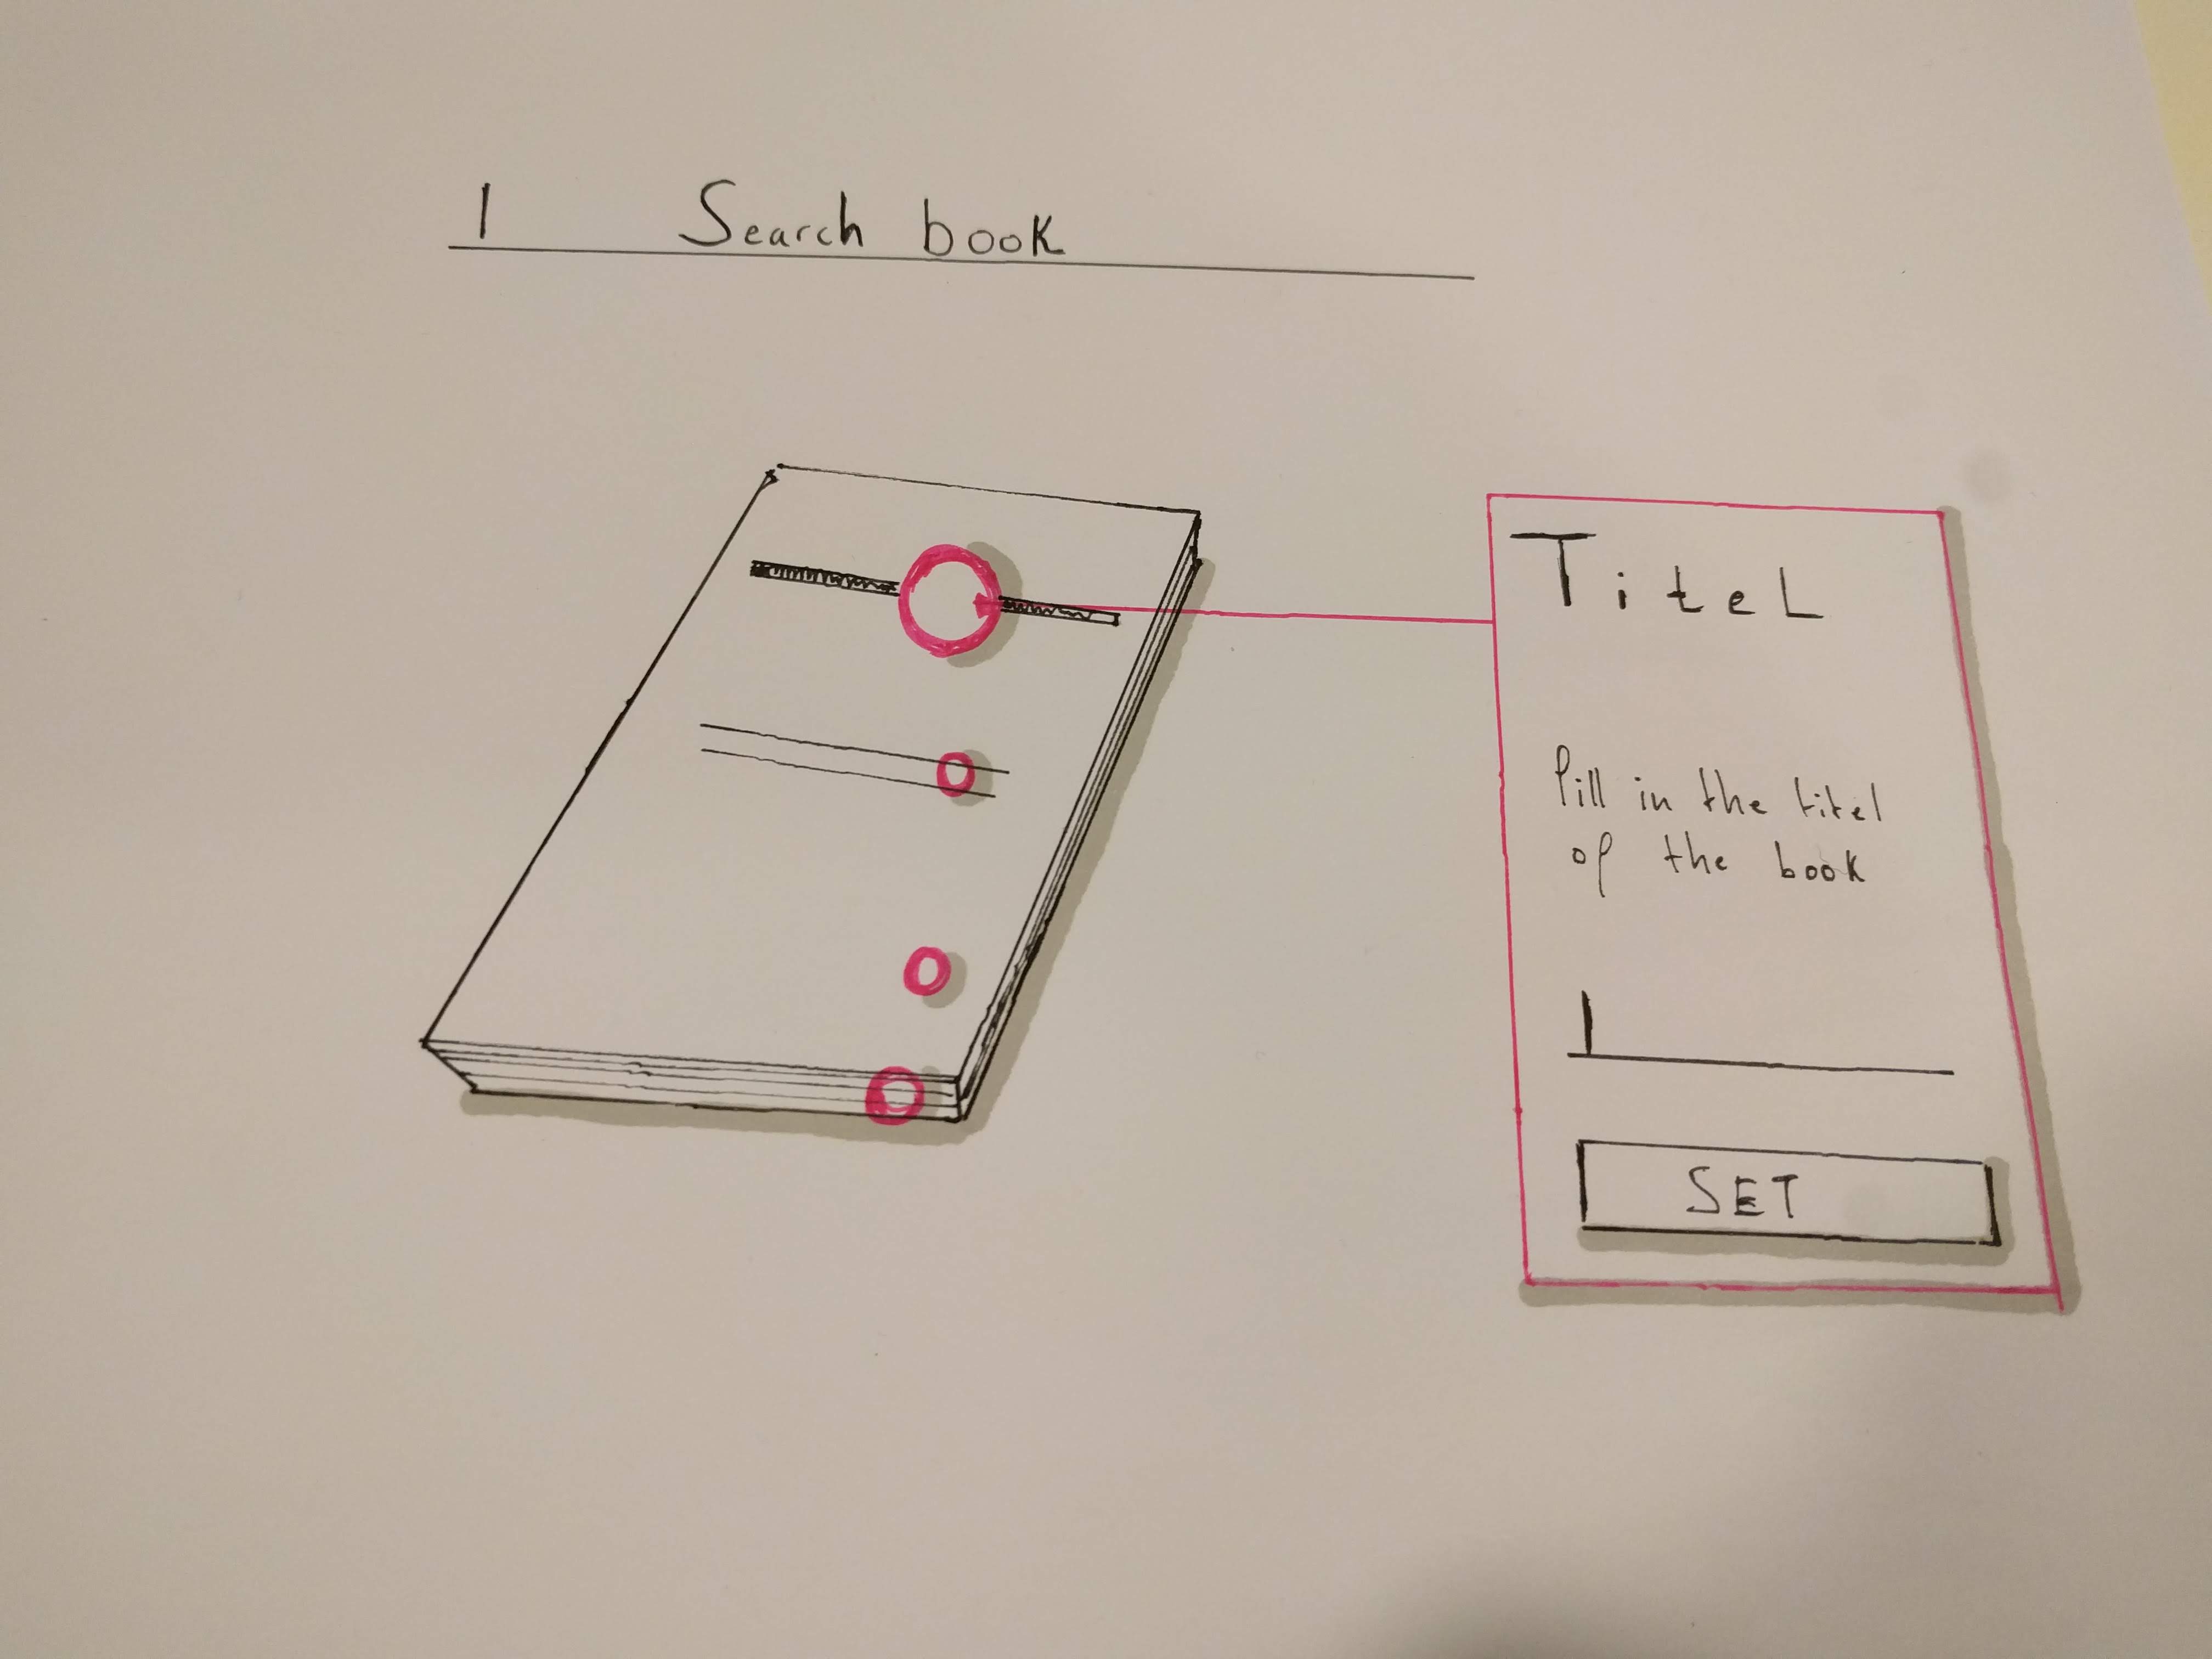 1 Search book
Titel
fill in the titel
of the book
SET